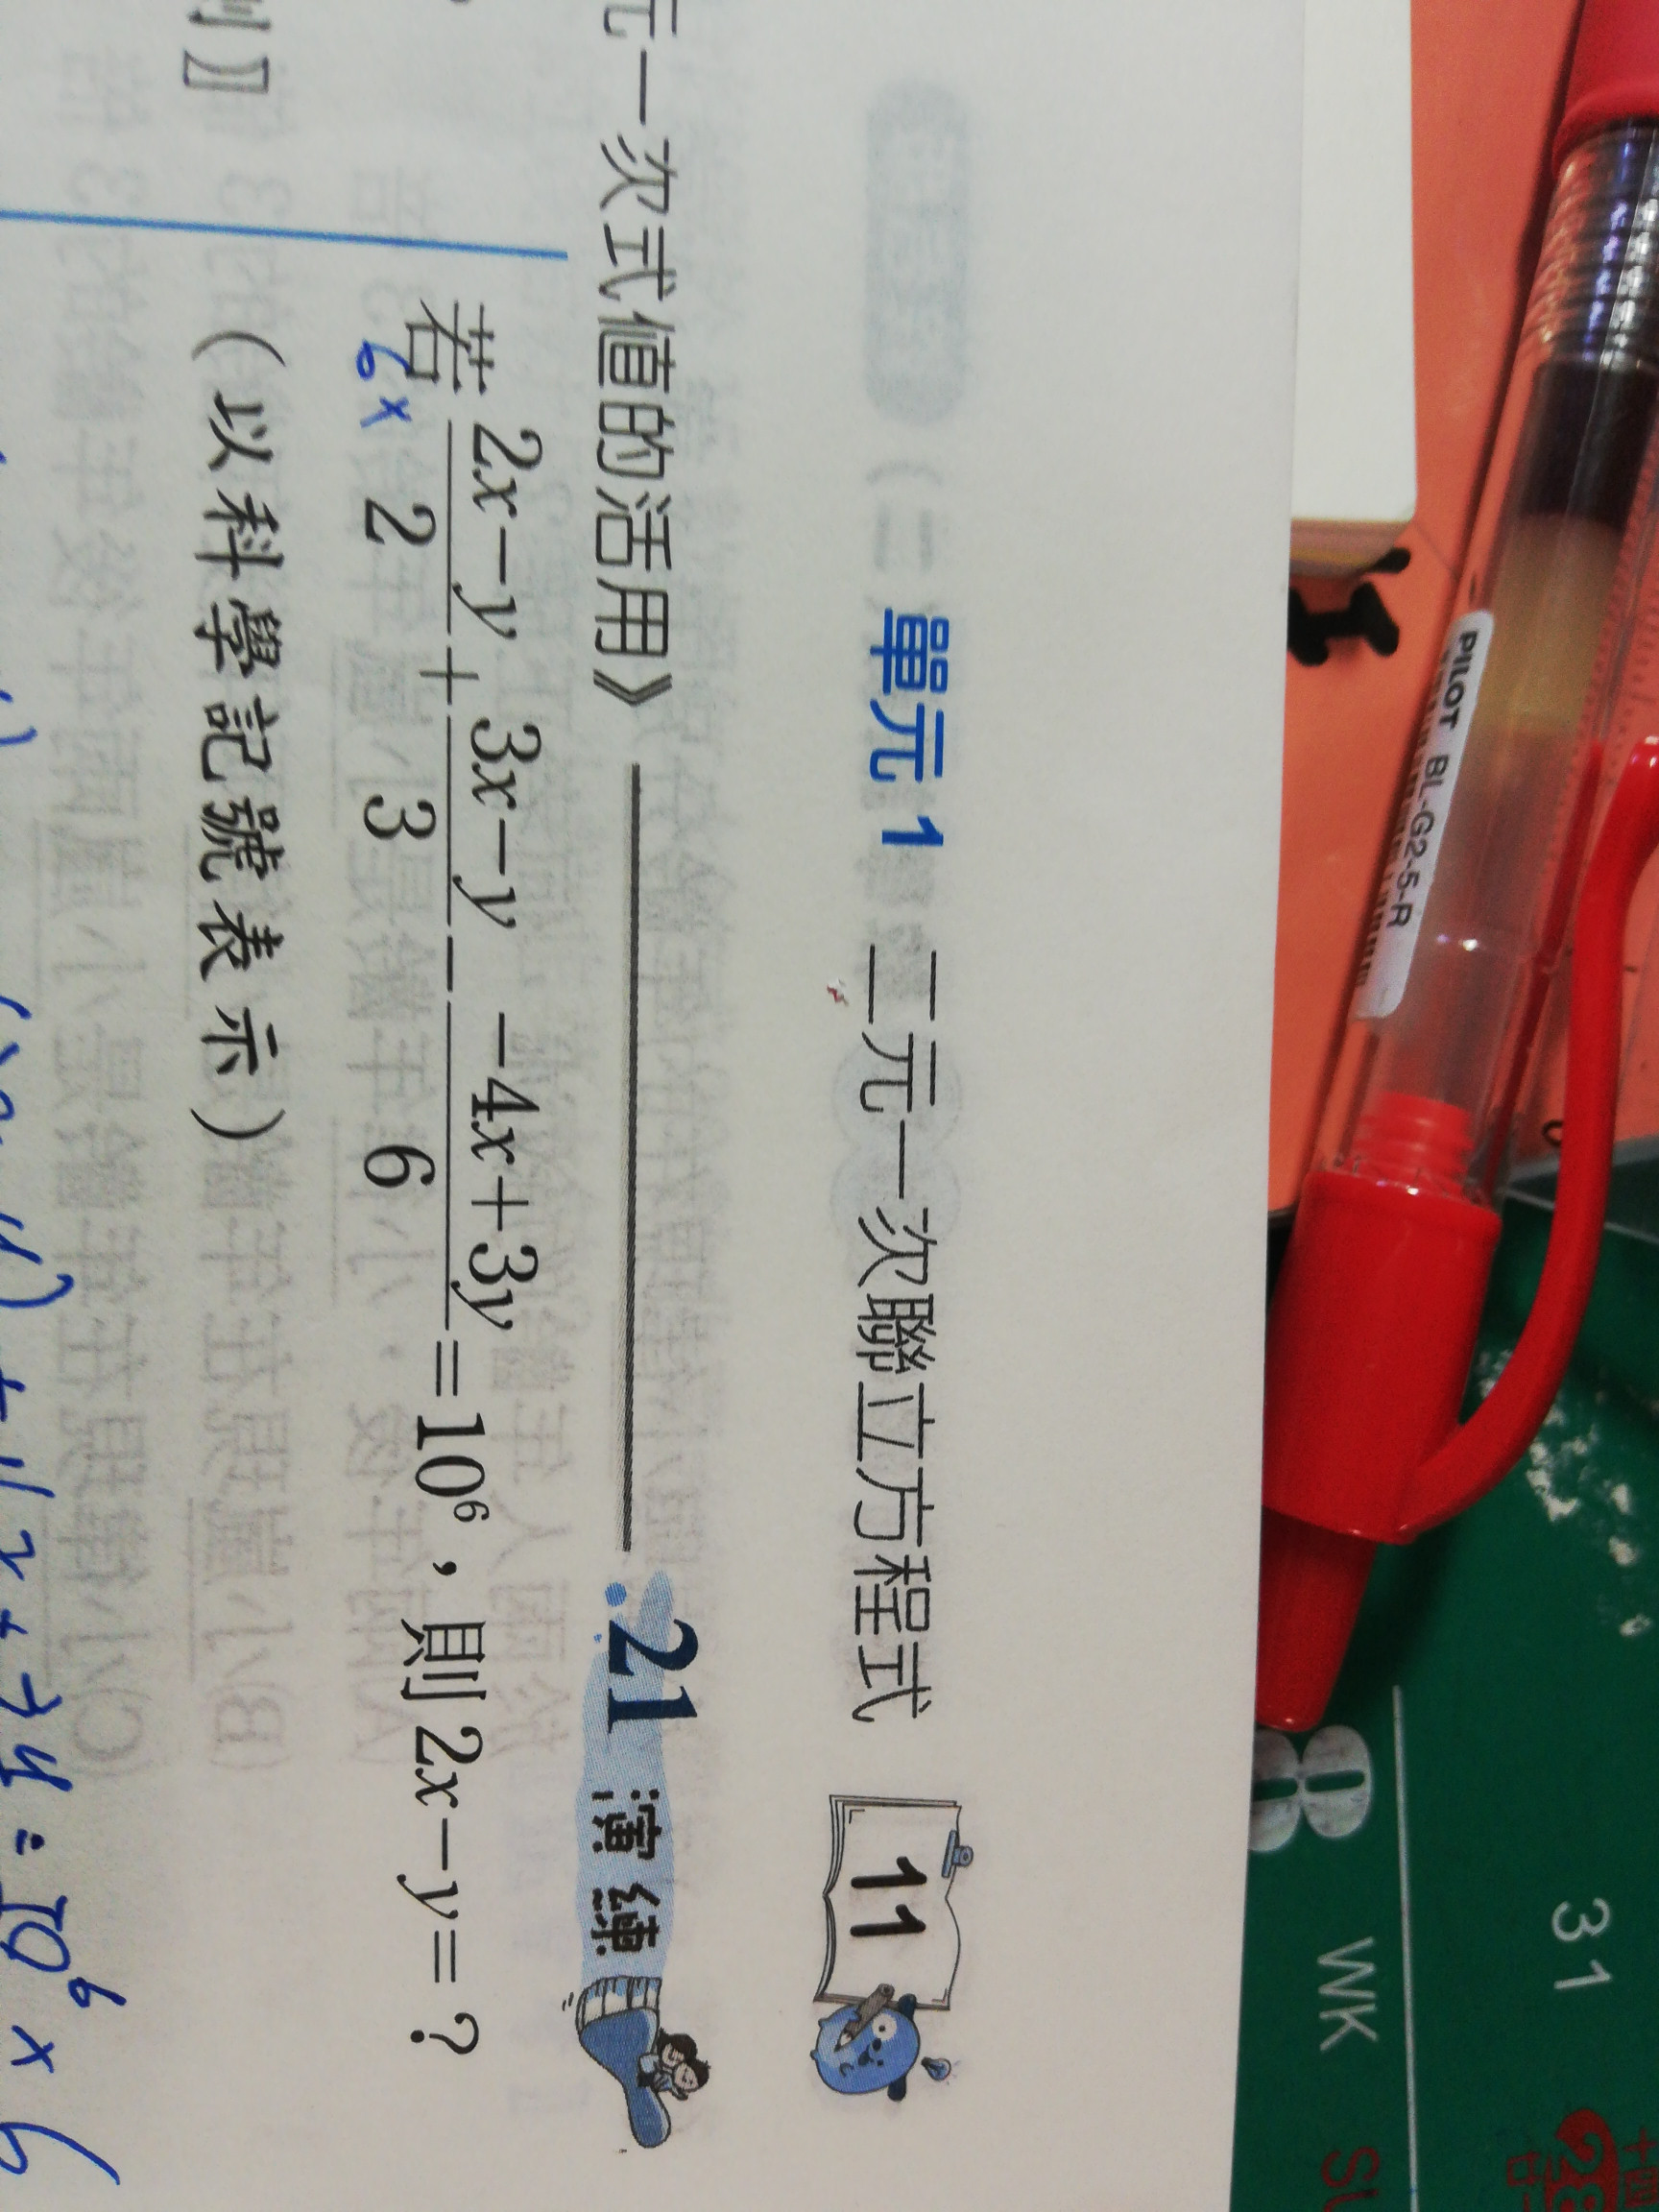 單元1 二元一次聯立方程式 11
元一次式值的活用》 21 演練
若 \frac{2x-y}{2}+\frac{3x-y}{3}-\frac{-4x+3y}{6}=10^6，則2x-y=？
6x
(以科學記號表示)
例】
= 10^6 x 6
PILOT BL-G2-5-R
31
8
WK
28